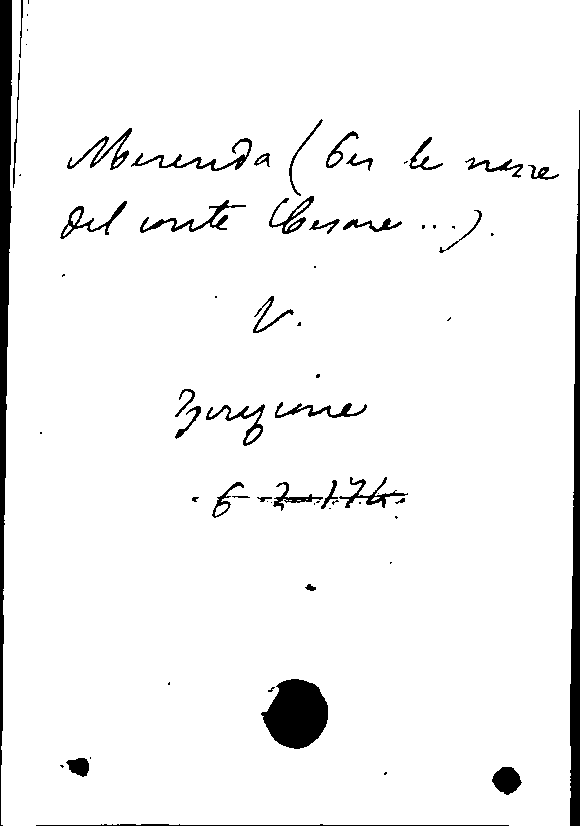 Merenda (Per le nozze
del conte Cesare ...).
V.
6 2 174.